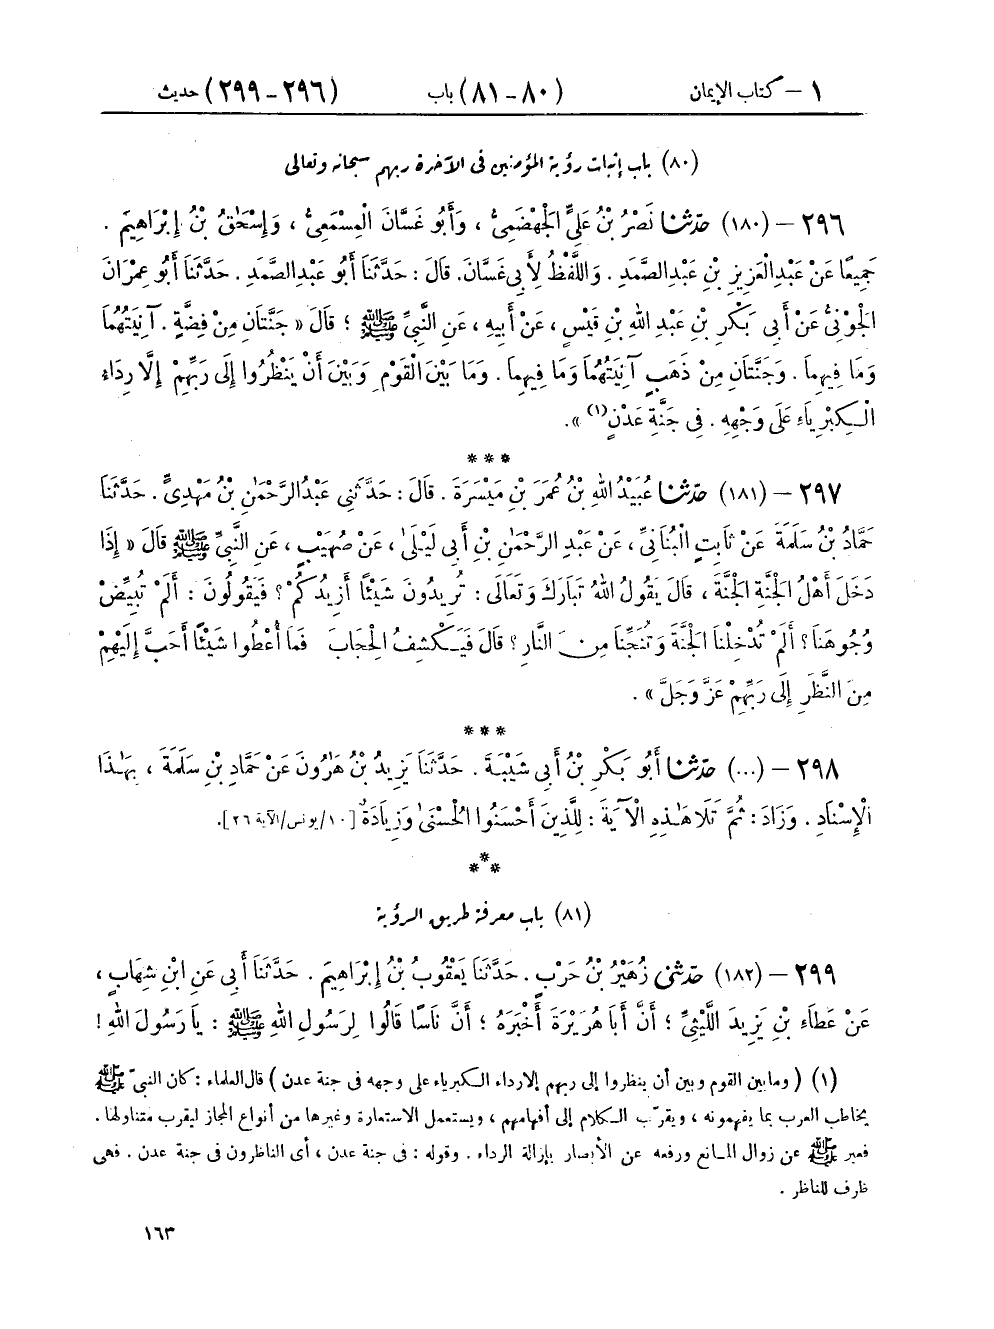 ١ – كتاب الإيمان (٨٠ – ٨١) باب (٢٩٦ – ٢٩٩) حديث
(٨٠) باب إثبات رؤية المؤمنين في الآخرة ربهم سبحانه وتعالى
٢٩٦ – (١٨٠) حَدَّثَنَا نَصْرُ بْنُ عَلِيٍّ الْجَهْضَمِيُّ ، وَأَبُو غَسَّانَ الْمِسْمَعِيُّ ، وَإِسْحَٰقُ بْنُ إِبْرَاهِيمَ .
جَمِيعًا عَنْ عَبْدِ الْعَزِيزِ بْنِ عَبْدِ الصَّمَدِ . وَاللَّفْظُ لِأَبِي غَسَّانَ. قَالَ : حَدَّثَنَا أَبُو عَبْدِ الصَّمَدِ . حَدَّثَنَا أَبُو عِمْرَانَ
الْجَوْنِيُّ عَنْ أَبِي بَكْرِ بْنِ عَبْدِ اللهِ بْنِ قَيْسٍ ، عَنْ أَبِيهِ ، عَنِ النَّبِيِّ ﷺ ؛ قَالَ « جَنَّتَانِ مِنْ فِضَّةٍ . آنِيَتُهُمَا
وَمَا فِيهِمَا . وَجَنَّتَانِ مِنْ ذَهَبٍ آنِيَتُهُمَا وَمَا فِيهِمَا. وَمَا بَيْنَ الْقَوْمِ وَبَيْنَ أَنْ يَنْظُرُوا إِلَى رَبِّهِمْ إِلَّا رِدَاءُ
الْكِبْرِيَاءِ عَلَى وَجْهِهِ . فِي جَنَّةِ عَدْنٍ(١) ».
* * *
٢٩٧ – (١٨١) حَدَّثَنَا عُبَيْدُ اللهِ بْنُ عُمَرَ بْنِ مَيْسَرَةَ . قَالَ : حَدَّثَنِي عَبْدُ الرَّحْمَٰنِ بْنُ مَهْدِيٍّ . حَدَّثَنَا
حَمَّادُ بْنُ سَلَمَةَ عَنْ ثَابِتٍ الْبُنَانِيِّ ، عَنْ عَبْدِ الرَّحْمَٰنِ بْنِ أَبِي لَيْلَىٰ ، عَنْ صُهَيْبٍ ، عَنِ النَّبِيِّ ﷺ قَالَ « إِذَا
دَخَلَ أَهْلُ الْجَنَّةِ الْجَنَّةَ ، قَالَ يَقُولُ اللهُ تَبَارَكَ وَتَعَالَى : تُرِيدُونَ شَيْئًا أَزِيدُكُمْ ؟ فَيَقُولُونَ : أَلَمْ تُبَيِّضْ
وُجُوهَنَا ؟ أَلَمْ تُدْخِلْنَا الْجَنَّةَ وَتُنَجِّنَا مِنَ النَّارِ ؟ قَالَ فَيَكْشِفُ الْحِجَابَ فَمَا أُعْطُوا شَيْئًا أَحَبَّ إِلَيْهِمْ
مِنَ النَّظَرِ إِلَى رَبِّهِمْ عَزَّ وَجَلَّ » .
* * *
٢٩٨ – (...) حَدَّثَنَا أَبُو بَكْرِ بْنُ أَبِي شَيْبَةَ . حَدَّثَنَا يَزِيدُ بْنُ هَٰرُونَ عَنْ حَمَّادِ بْنِ سَلَمَةَ ، بِهَٰذَا
الْإِسْنَادِ . وَزَادَ : ثُمَّ تَلَا هَٰذِهِ الْآيَةَ : لِلَّذِينَ أَحْسَنُوا الْحُسْنَىٰ وَزِيَادَةٌ [١٠/يونس/الآية ٢٦].
* * *
(٨١) باب معرفة طريق الرؤية
٢٩٩ – (١٨٢) حَدَّثَنِي زُهَيْرُ بْنُ حَرْبٍ . حَدَّثَنَا يَعْقُوبُ بْنُ إِبْرَاهِيمَ . حَدَّثَنَا أَبِي عَنِ ابْنِ شِهَابٍ ،
عَنْ عَطَاءِ بْنِ يَزِيدَ اللَّيْثِيِّ ؛ أَنَّ أَبَا هُرَيْرَةَ أَخْبَرَهُ ؛ أَنَّ نَاسًا قَالُوا لِرَسُولِ اللهِ ﷺ : يَا رَسُولَ اللهِ !
(١) ( وما بين القوم وبين أن ينظروا إلى ربهم إلا رداء الكبرياء على وجهه في جنة عدن ) قال العلماء : كان النبيّ ﷺ
يخاطب العرب بما يفهمونه ، ويقرّب الكلام إلى أفهامهم ، ويستعمل الاستعارة وغيرها من أنواع المجاز ليقرب متناولها .
فعبر ﷺ عن زوال المانع ورفعه عن الأبصار بإزالة الرداء . وقوله : في جنة عدن ، أى الناظرون في جنة عدن . فهى
ظرف للناظر .
١٦٣